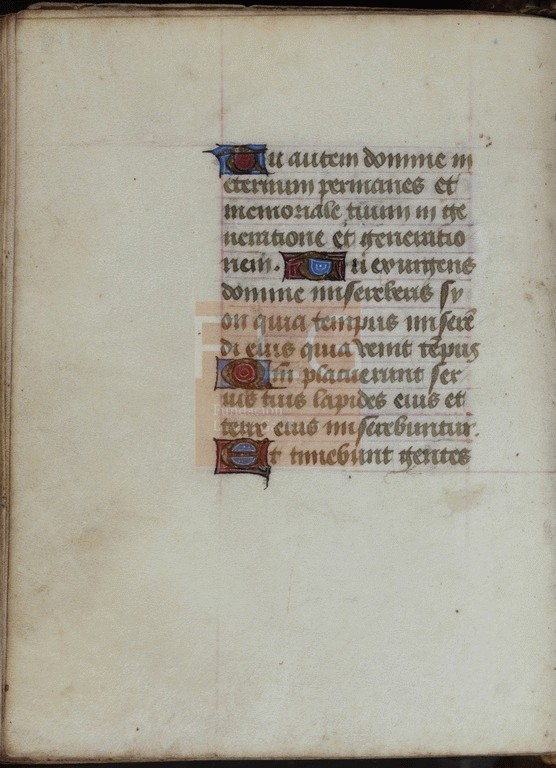 Tu autem domine in
eternum permanes et
memoriale tuum in ge
neratione et generatio
nem. Tu exurgens
domine misereberis sy
on quia tempus misere
di eius quia venit tēpus
Qm̄ placuerunt ser
uis tuis lapides eius et
terre eius miserebuntur.
Et timebunt gentes
FLG
Fundación